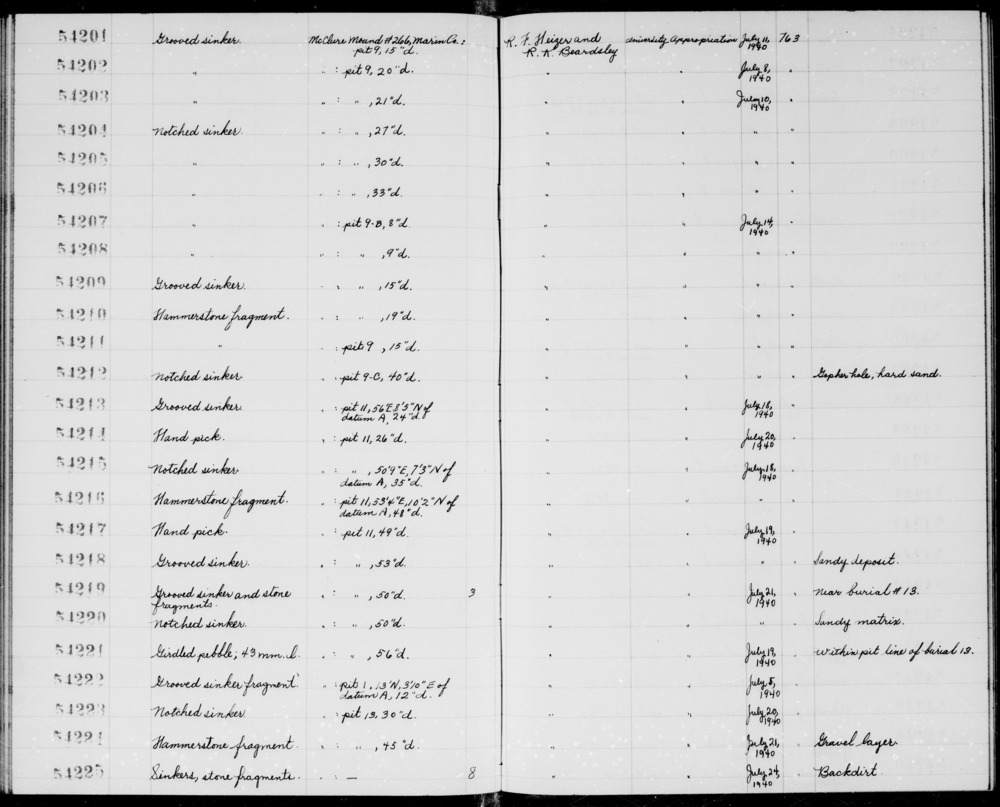 54201 Grooved sinker. McClure Mound #266, Marin Co.: R. F. Heizer and University Appropriation July 11, 763
pit 9, 15"d. R. K. Beardsley 1940
54202 " " : pit 9, 20"d. " " July 8, "
1940
54203 " " : " , 21"d. " " July 10, "
1940
54204 Notched sinker. " : " , 27"d. " " " "
54205 " " : " , 30"d. " " " "
54206 " " : " , 33"d. " " " "
54207 " " : pit 9-B, 8"d. " " July 14, "
1940
54208 " " : " , 9"d. " " " "
54209 Grooved sinker. " : " , 15"d. " " " "
54210 Hammerstone fragment. " : " , 19"d. " " " "
54211 " " : pit 9 , 15"d. " " " "
54212 Notched sinker " : pit 9-C, 40"d. " " " " Gopher hole, hard sand.
54213 Grooved sinker " : pit 11, 56'E 8'5"N of " " July 18, "
datum A, 24"d. 1940
54214 Hand pick. " : pit 11, 26"d. " " July 20, "
1940
54215 Notched sinker " : " , 50'9"E, 7'3"N of " " July 18, "
datum A, 35"d. 1940
54216 Hammerstone fragment. " : pit 11, 53'4"E, 10'2"N of " " " "
datum A, 48"d.
54217 Hand pick. " : pit 11, 49"d. " " July 19, "
1940
54218 Grooved sinker. " : " , 53"d. " " " " Sandy deposit.
54219 Grooved sinker and stone " : " , 50"d. 3 " " July 21, " Near burial #13.
fragments. 1940
54220 Notched sinker. " : " , 50"d. " " " " Sandy matrix.
54221 Girdled pebble; 43 mm. l. " : " , 56"d. " " July 19, " Within pit line of burial 13.
1940
54222 Grooved sinker fragment. " : pit 1, 13'N, 3'10"E of " " July 8, "
datum A, 12"d. 1940
54223 Notched sinker. " : pit 13, 30"d. " " July 20, "
1940
54224 Hammerstone fragment. " : " , 45"d. " " July 21, " Gravel layer.
1940
54225 Sinkers, stone fragments. " : — 8 " " July 24, " Backdirt.
1940